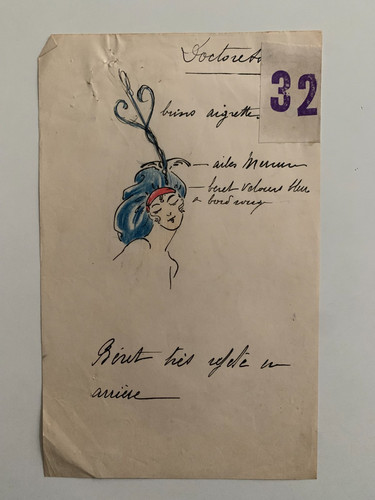 32
brins aigrette
ailes Mercure
beret velours bleu
bord rouge
Béret très rejeté en
arrière